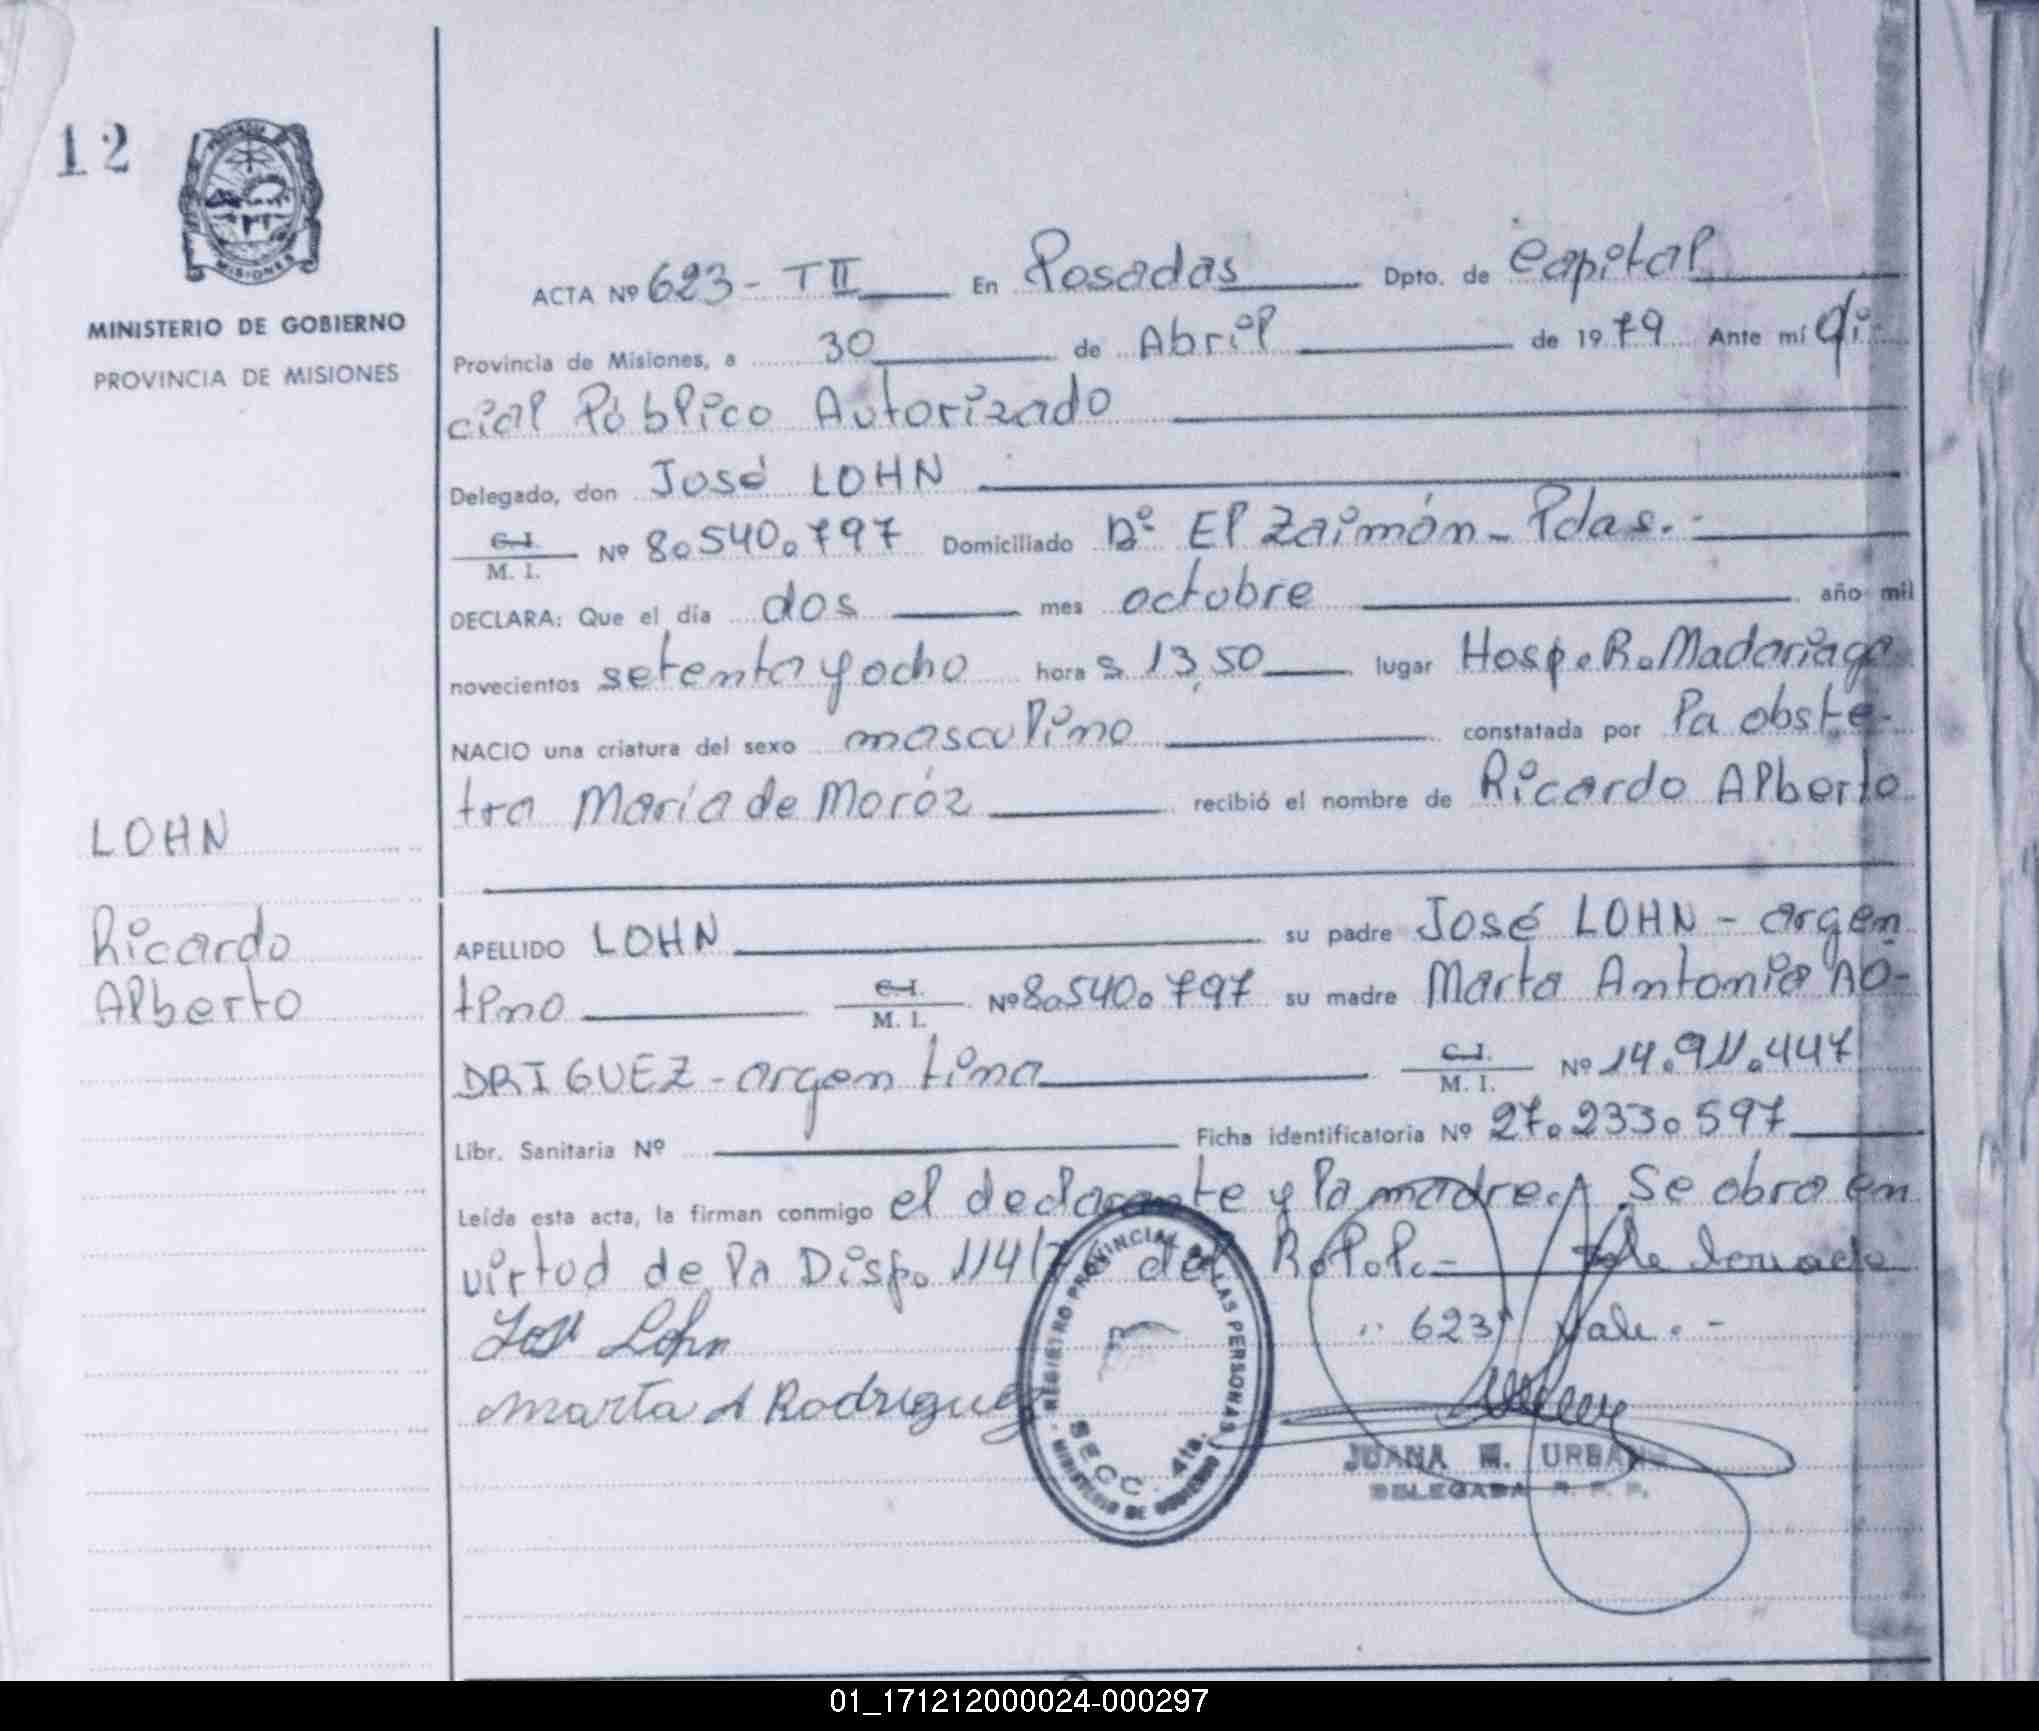 12
PROVINCIA DE
MISIONES
MINISTERIO DE GOBIERNO
PROVINCIA DE MISIONES
LOHN
Ricardo
Alberto
ACTA Nº 623 - T II En Posadas Dpto. de Capital
Provincia de Misiones, a 30 de Abril de 1979 Ante mí Ofi
cial Público Autorizado
Delegado, don José LOHN
C.I. M. I. Nº 8.540.797 Domiciliado Bº El Zaimán - Pdas. -
DECLARA: Que el día dos mes octubre año mil
novecientos setenta y ocho hora s 13,50 lugar Hosp. R. Madariaga
NACIO una criatura del sexo masculino constatada por la obste-
tra María de Moróz recibió el nombre de Ricardo Alberto
APELLIDO LOHN su padre José LOHN - argen
tino C.I. M. I. Nº 8.540.797 su madre Marta Antonia RO-
DRIGUEZ - argentina C.I. M. I. Nº 14.911.447
Libr. Sanitaria Nº Ficha identificatoria Nº 27.233.597
Leída esta acta, la firman conmigo el declarante y la madre. Se obra en
virtud de la Disp. 114/ del R.P.P. -
José Lohn " 623" Vale. -
Marta A Rodriguez
REGISTRO PROVINCIAL DE LAS PERSONAS
SECC. 4ta.
MINISTERIO DE GOBIERNO
JUANA M. URBAN
DELEGADA R. P. P.
01_171212000024-000297